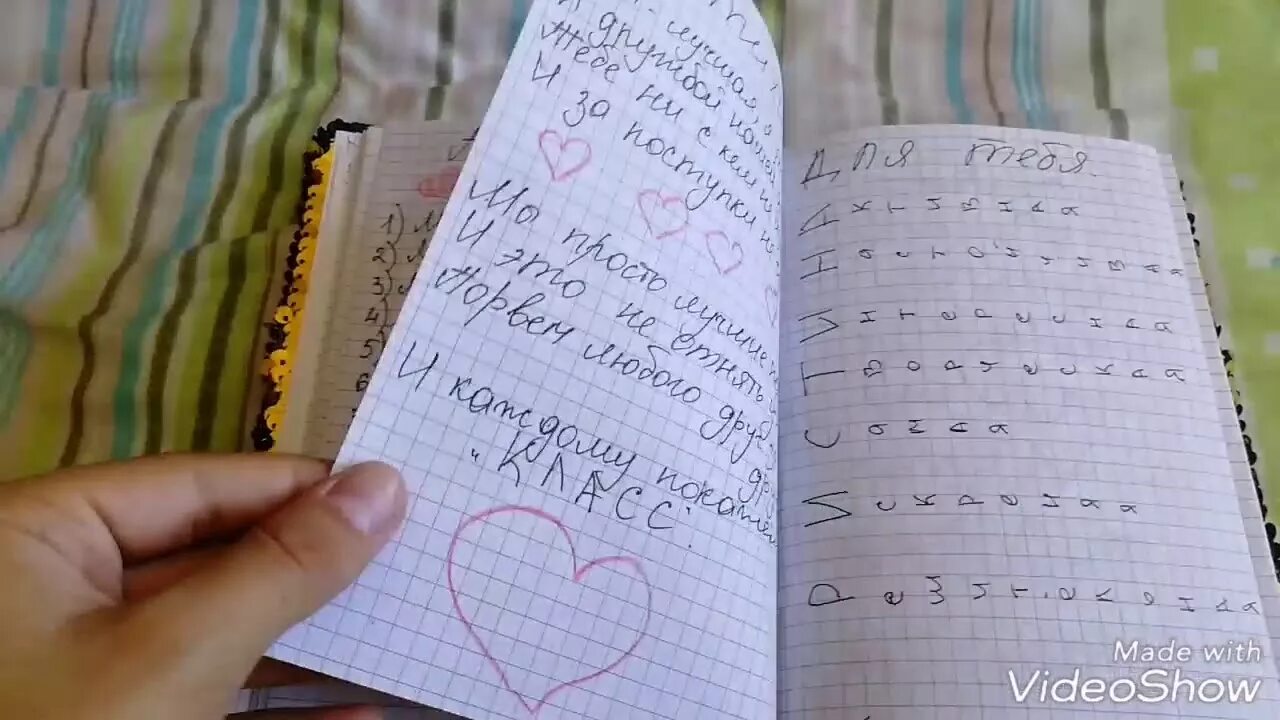 лучшая,
дружбой нашей
тебе ни с кем
И за поступки
Мы просто лучшие
И это не отнять
Порвем любого
И каждому покажем
"КЛАСС".
1)
2)
3)
4)
5)
6)
Для тебя.
Активная
Настойчивая
Интересная
Творческая
С
Искреная
Решительная
Made with
VideoShow